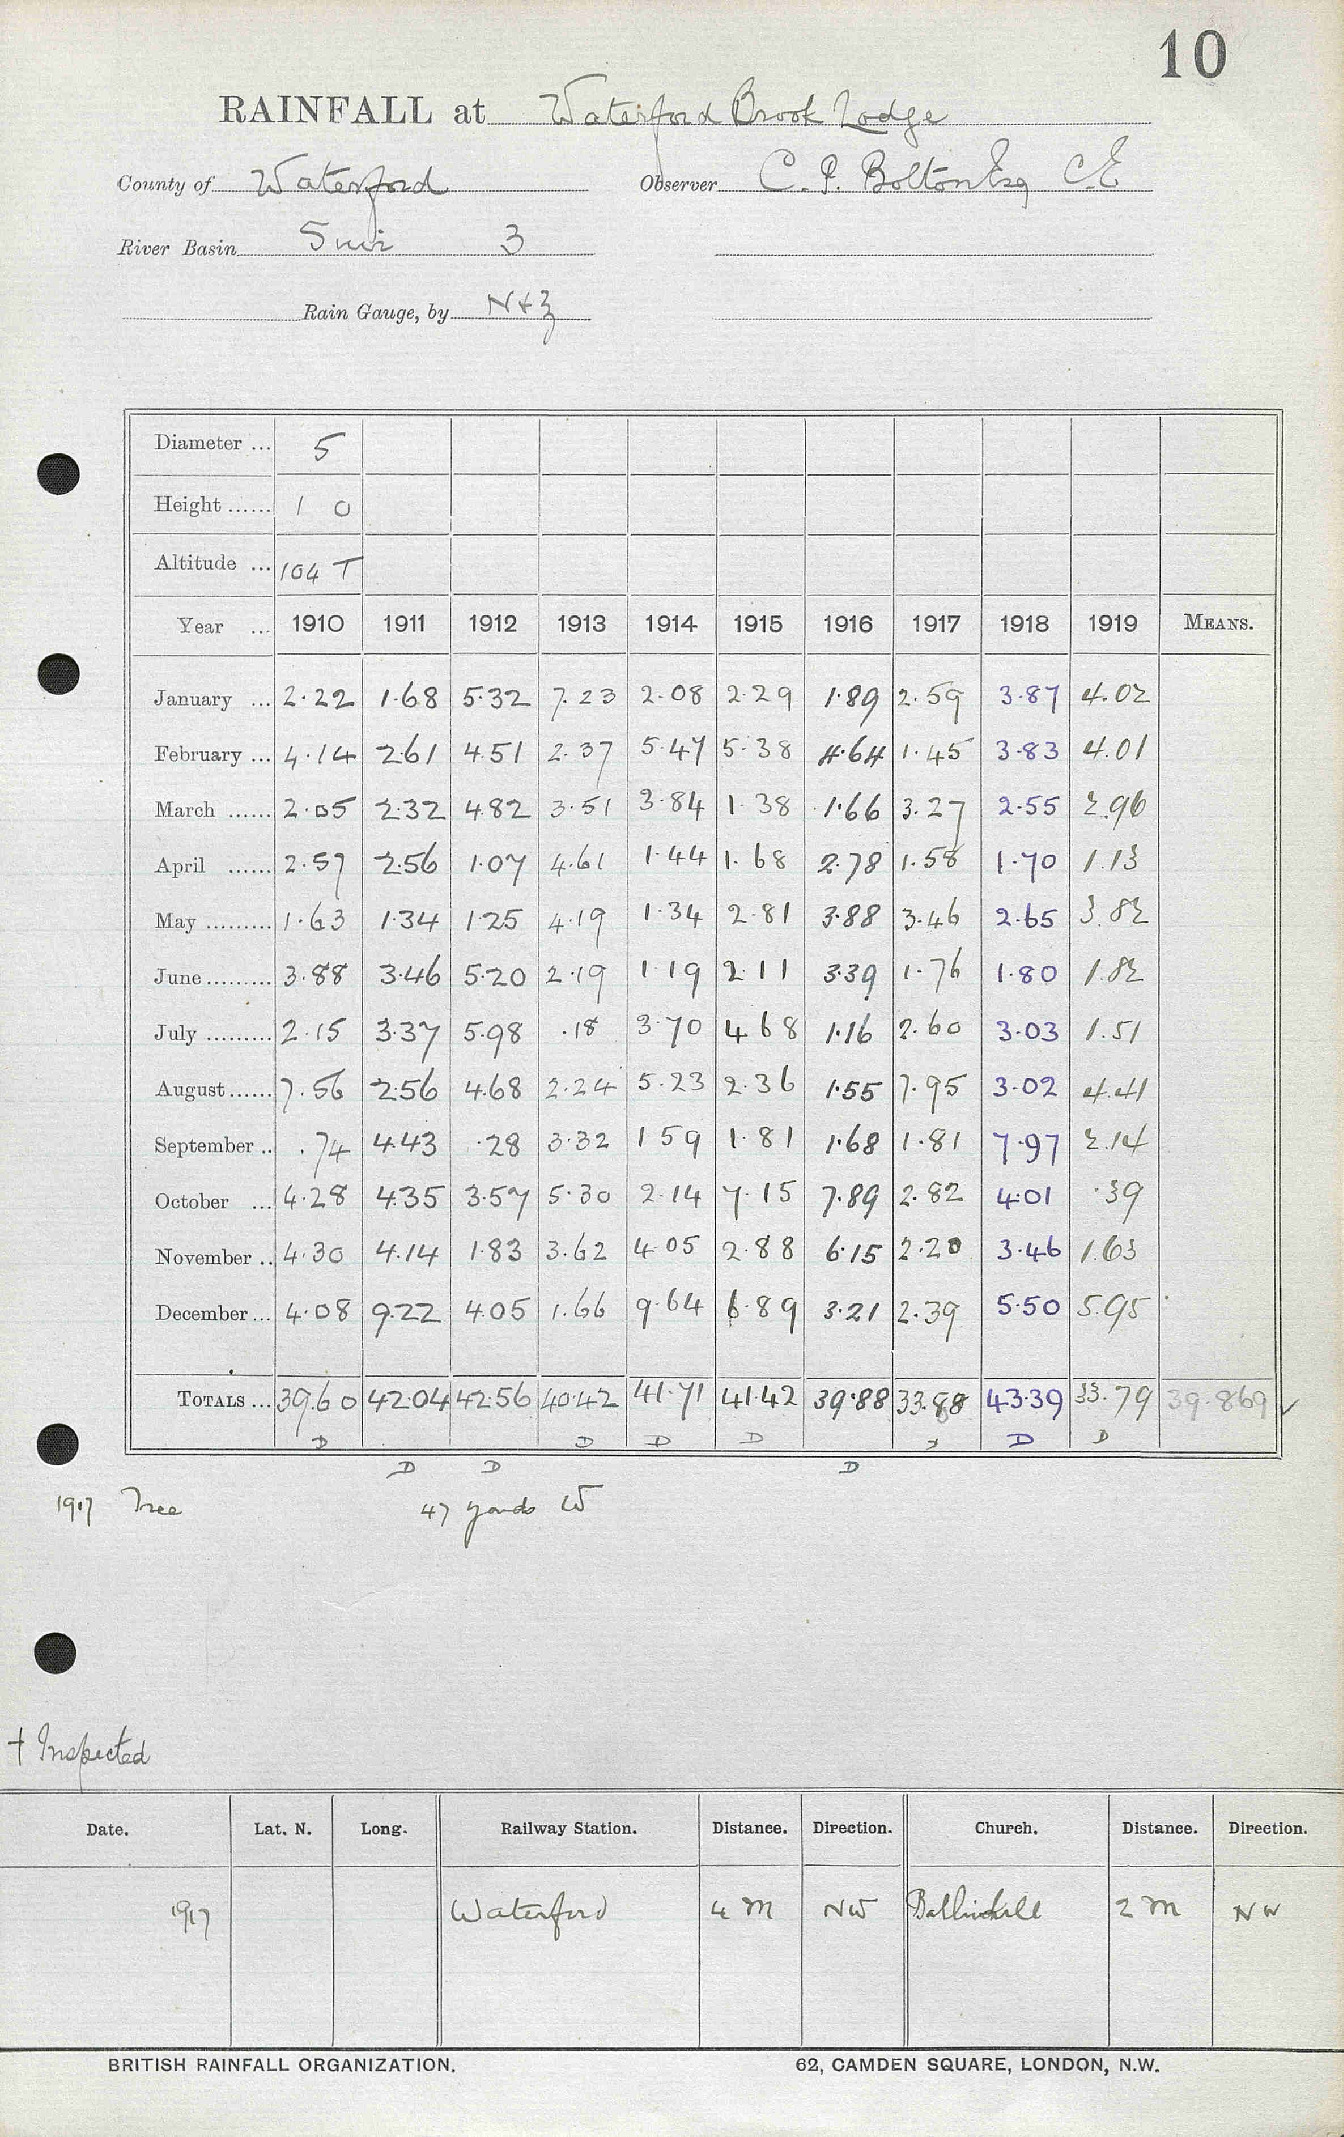 10
RAINFALL at Waterford Brook Lodge
County of Waterford Observer C. P. Bolton Esq C.E
River Basin Suir 3
Rain Gauge, by N+Z
Diameter ... 5
Height ...... 1 0
Altitude ... 104 T
Year ... 1910 1911 1912 1913 1914 1915 1916 1917 1918 1919 MEANS.
January ... 2.22 1.68 5.32 7.23 2.08 2.29 1.89 2.59 3.87 4.02
February ... 4.14 2.61 4.51 2.37 5.47 5.38 4.64 1.45 3.83 4.01
March ...... 2.05 2.32 4.82 3.51 3.84 1.38 1.66 3.27 2.55 2.96
April ...... 2.57 2.56 1.07 4.61 1.44 1.68 2.78 1.58 1.70 1.13
May ......... 1.63 1.34 1.25 4.19 1.34 2.81 3.88 3.46 2.65 3.82
June ......... 3.88 3.46 5.20 2.19 1.19 2.11 3.39 1.76 1.80 1.82
July ......... 2.15 3.37 5.98 .18 3.70 4.68 1.16 2.60 3.03 1.51
August ...... 7.56 2.56 4.68 2.24 5.23 2.36 1.55 7.95 3.02 4.41
September .. .74 4.43 .28 3.32 1 59 1.81 1.68 1.81 7.97 2.14
October ... 4.28 4.35 3.57 5.30 2.14 7.15 7.89 2.82 4.01 .39
November .. 4.30 4.14 1.83 3.62 4.05 2.88 6.15 2.20 3.46 1.63
December ... 4.08 9.22 4.05 1.66 9.64 6.89 3.21 2.39 5.50 5.95
TOTALS ... 39.60 42.04 42.56 40.42 41.71 41.42 39.88 33.88 43.39 33.79 39.869 ✓
D D D D D D
D D D
1917 Tree 47 yards W
† Inspected
Date. Lat. N. Long. Railway Station. Distance. Direction. Church. Distance. Direction.
1917 Waterford 4 m NW 2 m NW
BRITISH RAINFALL ORGANIZATION. 62, CAMDEN SQUARE, LONDON, N.W.